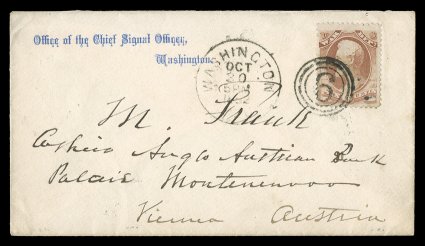 Office of the Chief Signal Officer,
Washington
WASHINGTON
OCT
20
6
M. Frank
Cashier Anglo Austrian Bank
Palais Montenenovo
Vienna Austria